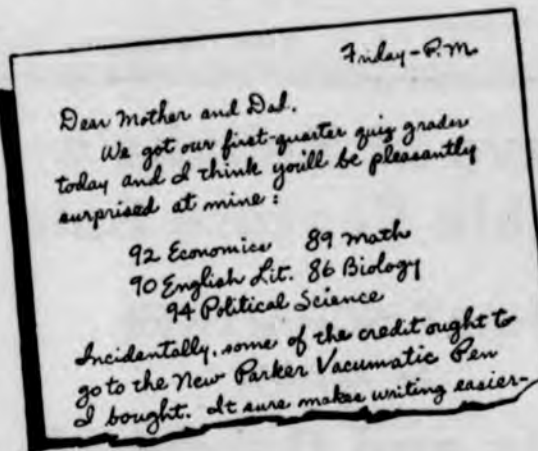 Friday-P.M.
Dear Mother and Dad.
We got our first-quarter quiz grades
today and I think you'll be pleasantly
surprised at mine:
92 Economics 89 Math
90 English Lit. 86 Biology
94 Political Science
Incidentally, some of the credit ought to
go to the New Parker Vacumatic Pen
I bought. It sure makes writing easier-